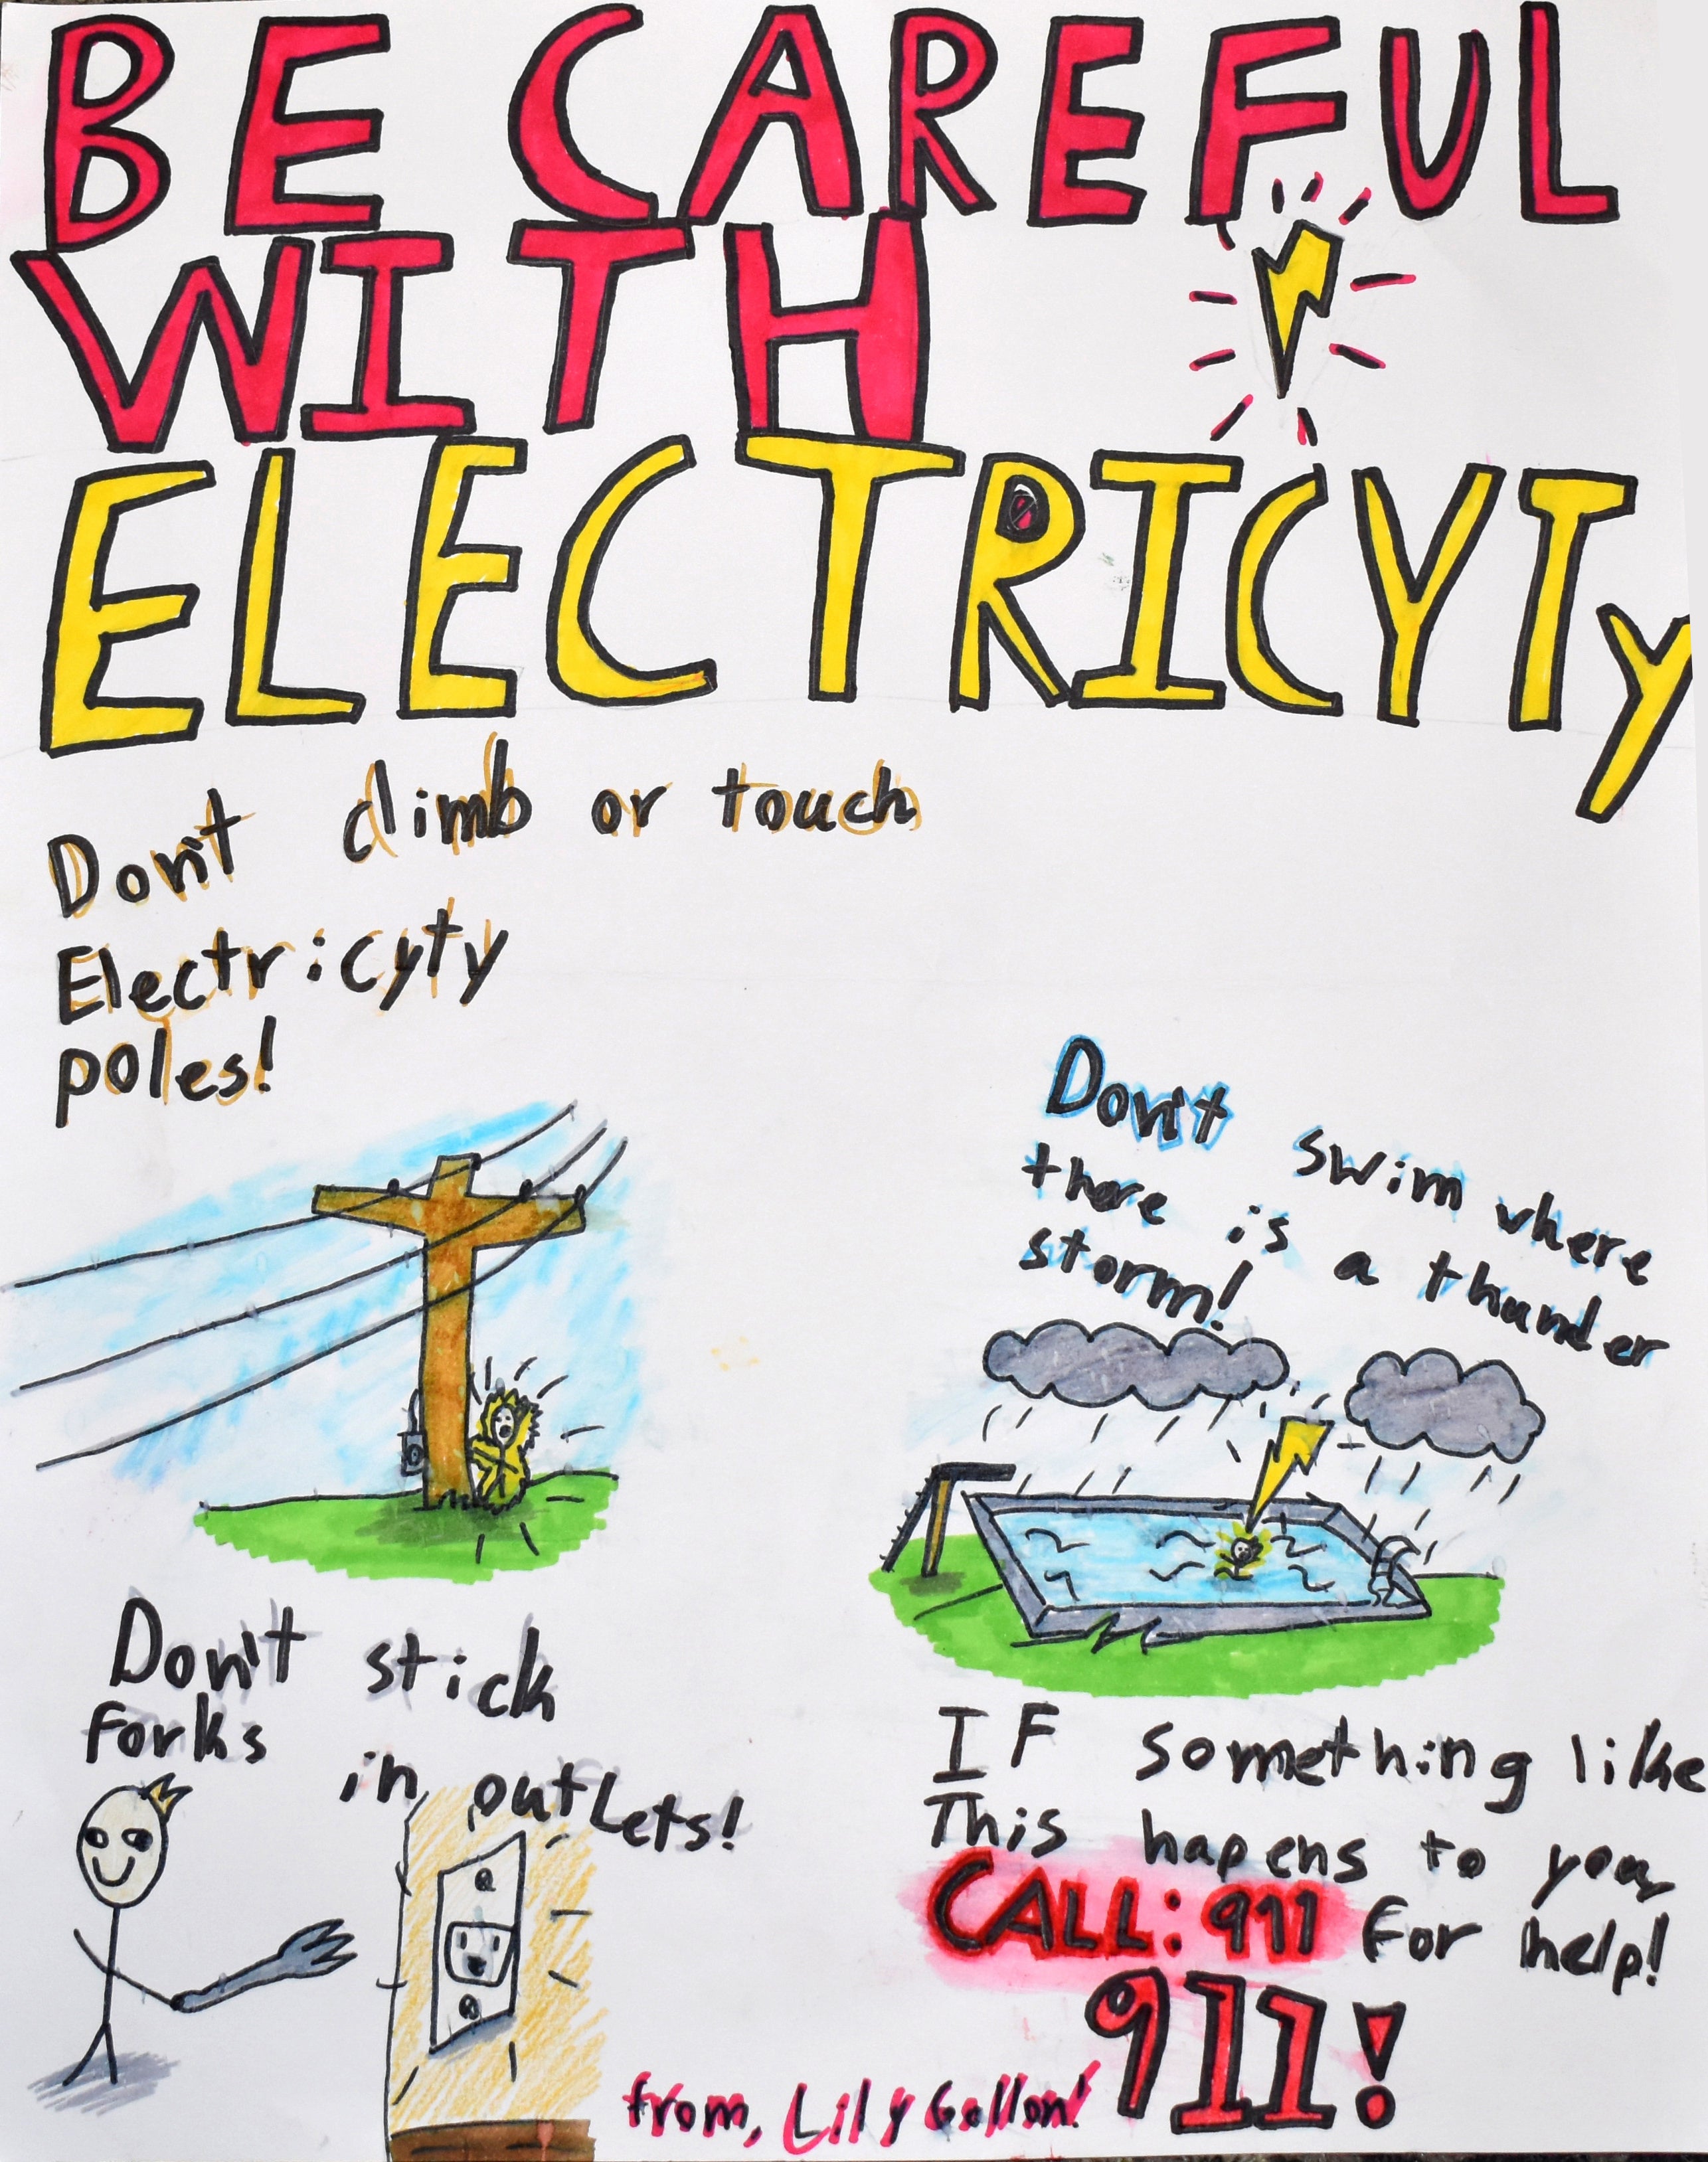 BE CAREFUL
WITH
ELECTRICYTy
Don't climb or touch
Electricyty
poles!
Don't swim where
there is a thunder
storm!
Don't stick
forks
in outlets!
IF something like
This hapens to you,
CALL: 911 for help!
911!
from, Lily Gallon!